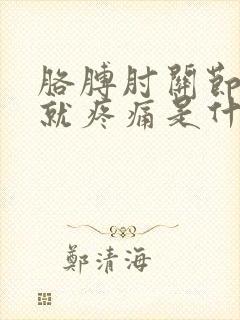 胳膊肘關節
就疼痛是什
鄭清海